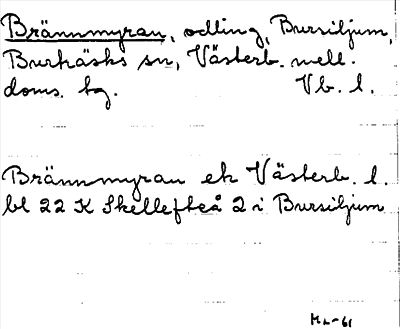 Brännmyran, odling, Bursiljum,
Burträsks sn, Västerb. mell.
doms. tg. Vb. l.
Brännmyran ek Västerb. l.
bl 22 K Skellefteå 2 i Bursiljum